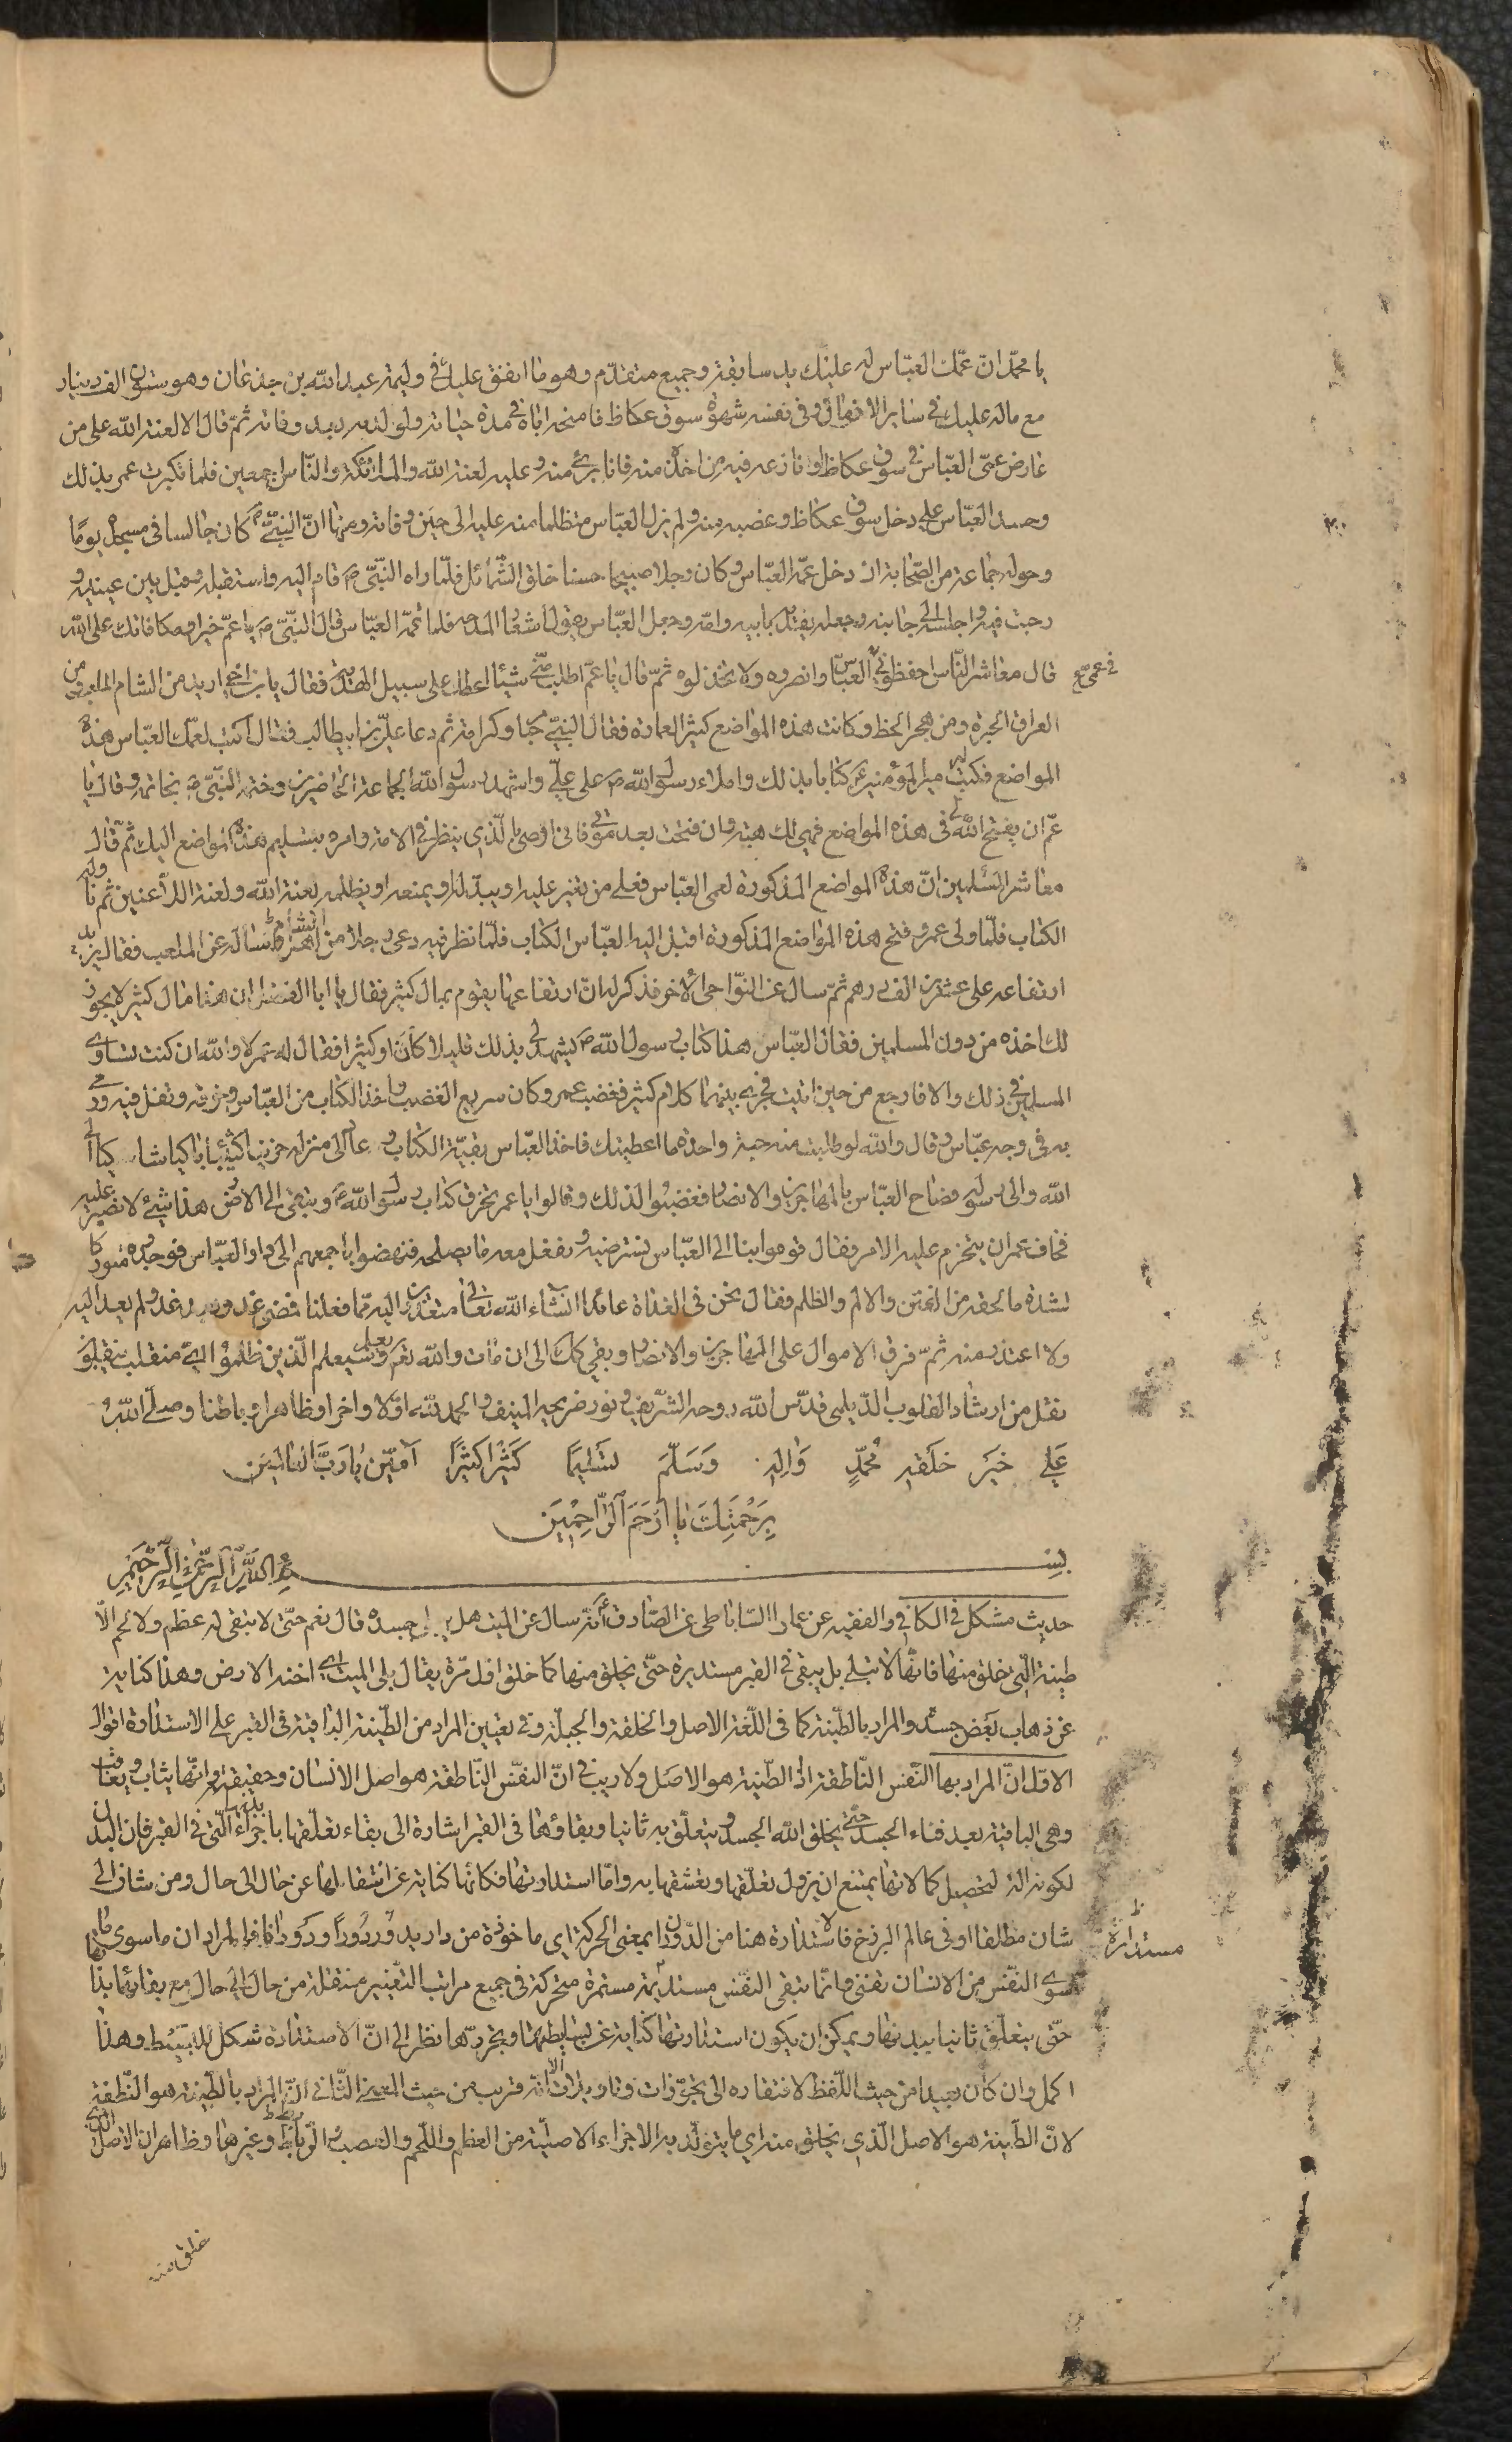 يا محمّد انّ عمّك العبّاس له عليك يد سابقة وجميع متقدّم وهو ما انفق عليك في وليمة عبد الله بن جذعان وهو ستّون الف دينار
مع ماله عليك في سائر الازمان وفي نفسه شهوة سوق عكاظ فامنحه اياه في مدة حياته ولولده بعد وفاته ثمّ قال الا لعنة الله على من
عارض عمّي العبّاس في سوق عكاظ او نازعه فيه من اخذه منه فانا برئ منه وعليه لعنة الله والملائكة والناس اجمعين فلم يكترث عمر بذلك
وحسد العبّاس على دخل سوق عكاظ وغصبه منه ولم يزل العبّاس متظلما منه عليه الى حين وفاته ومنها انّ النبيّ ص كان جالسا في مسجده يومًا
وحوله جماعة من الصّحابة اذ دخل عمّه العبّاس وكان رجلا صبيحا حسنا خلق الشّمائل فلمّا راه النبيّ ص قام اليه واستقبله وقبل بين عينيه و
رحب فيه واجلسه الى جانبه وجعله يفديه بابيه وامّه وجعل العبّاس يقول اشعار المدحه فلما تمّه العبّاس قال النبيّ ص يا عمّ خيرا ومكافاتك على الله
قال معاشر النّاس احفظوني في عمّي العبّاس وانصروه ولا تخذلوه ثمّ قال يا عمّ اطلب منّي شيئا اعطك على سبيل الهديّة فقال يا بن اخي اريد من الشام الملعب ومن
العراق الحيرة ومن هجر الخط وكانت هذه المواضع كثيرة العمارة فقال النبيّ حبّا وكرامة ثم دعا عليّ بن ابيطالب فقال اكتب لعمّك العبّاس هذه
المواضع فكتب امير المؤمنين كتابا بذلك واملاء رسول الله ص على عليّ واشهد رسول الله الجماعة الحاضرين وختمه النبيّ ص بخاتمه وقال يا
عمّ ان يفتح الله تعالى هذه المواضع فهي لك هبة وان فتحت بعد موتي فانّي اوصي الّذي ينظر في الامة وامره بتسليم هذه المواضع اليك ثمّ قال
معاشر المسلمين انّ هذه المواضع المذكورة لعمي العبّاس فعلى من يغير عليه او يبدّله او يمنعه او يظلمه لعنة الله ولعنة اللّاعنين ثم ناوله
الكتاب فلمّا ولى عمر وفتح هذه المواضع المذكورة اقبل اليه العبّاس الكتاب فلمّا نظر فيه دعى رجلا من اهل الشام وساله عن الملعب فقال يزيد
ارتفاعه على عشرين الف درهم ثمّ سال عن النّواحي الأخر فذكر له انّ ارتفاعها يقوم بمال كثير فقال يا ابا الفضل ان هذا مال كثير لا يجوز
لك اخذه من دون المسلمين فقال العبّاس هذا كتاب رسول الله ص يشهد لي بذلك قليلا كان او كثيرا فقال له عمر لا والله ان كنت تساوي
المسلمين في ذلك والا فارجع من حين اتيت فجرى بينهما كلام كثير فغضب عمر وكان سريع الغضب واخذ الكتاب من العبّاس وخرقه وتفل فيه ورمى
به في وجه عبّاس وقال والله لو طلبت منه حبة واحدة ما اعطيتك فاخذ العبّاس بقيّة الكتاب وعاد الى منزله حزينا كئيبا باكيا شاكيا الى
الله والى رسوله فصاح العبّاس بالمهاجرين والانصار فغضبوا لذلك وقالوا يا عمر تخرق كتاب رسول الله ص وتلقي في الارض هذا شيئ لا نصبر عليه
فخاف عمر ان ينخرم عليه الامر فقال قوموا بنا الى العبّاس نسترضيه ونفعل معه ما يصلحه فنهضوا باجمعهم الى دار العبّاس فوجدوه موعوكا
لشدة ما لحقه من الفتن والالم والظلم فقال نحن في الغداة عائدا انشاء الله تعالى معتذرين اليه ممّا فعلنا فمضى غد وبعد غد ولم يعد اليه
ولا اعتذر منه ثمّ فرق الاموال على المهاجرين والانصار وبقي كك الى ان مات والله يعلم وسيعلم الّذين ظلموا ايّ منقلب ينقلبون
نقل من ارشاد القلوب الدّيلمي قدّس الله روحه الشّريف ونور ضريحه المنيف والحمد لله اوّلا واخرا وظاهرا وباطنا وصلّى الله
عَلى خَيرِ خَلقِهِ مُحَمّدٍ وَالِهِ وَسَلّمَ تَسليمًا كَثيرًا كَثيرًا آمّين يا رَبَّ العالمينَ
بِرَحْمَتِكَ يا اَرْحَمَ الرّاحِمينَ
بِسْمِ اللهِ الرّحمنِ الرّحيمِ
حديث مشكل في الكافي والفقيه عن عمار الساباطي عن الصّادق ع انّه سال عن الميت هل يبلى جسده قال نعم حتّى لا يبقى له عظم ولا لحم الّا
طينة الّتي خلق منها فانّها لا تبلى بل يبقى في القبر مستديرة حتّى يخلق منها كما خلق اوّل مرّة يقال بلى الميت اي اخذه الارض وهذا كناية
عن ذهاب بعض جسده والمراد بالطّينة كما في اللّغة الاصل والخلقة والجبلّة وفي تعيين المراد من الطّينة الباقية في القبر على الاستدارة اقوال
الاوّل انّ المراد بها النّفس النّاطقة اذ الطّينة هو الاصل ولا ريب في انّ النّفس النّاطقة هو اصل الانسان وحقيقته وانّها يثاب ويعاقب
وهي الباقية بعد فناء الجسد حتّى يخلق الله الجسد ويتعلّق به ثانيا وبقاؤها في القبر اشارة الى بقاء تعلّقها باجزاء بدنها الّتي في القبر فان البدن
لكونه الة لتحصيل كمالاتها يمتنع ان يزول تعلّقها وتعشّقها به وامّا استدارتها فكانّها كناية عن انتقالها عن حال الى حال ومن شان الى
شان مطلقا او في عالم البرزخ فالاستدارة هنا من الدّوران بمعنى الحركة اي ماخوذة من دار يدور دُورًا ودَوَرانًا فالمراد ان ما سوى
سوى النّفس من الانسان تفنى وانّما تبقى النّفس مستديمة مستمرة متحركة في جميع مراتب التّغيير منتقلة من حال الى حال مع بقائها بذاتها
حتّى يتعلّق ثانيا ببدنها ويمكن ان يكون استدارتها كناية عن بساطتها وتجرّدها نظر الى انّ الاستدارة شكل البسيط وهذا
اكمل وان كان بعيدا من حيث اللّفظ لافتقاره الى تجوّزات وتاويلات الا انّه قريب من حيث المعنى الثّاني انّ المراد بالطّينة هو النّطفة
لانّ الطّينة هو الاصل الّذي يخلق منه اي ما يتولّد به الاجزاء الاصليّة من العظم واللّحم والعصب والرّباط وغيرها وظاهر ان الاصل الذي
مستدارة
خلق منه